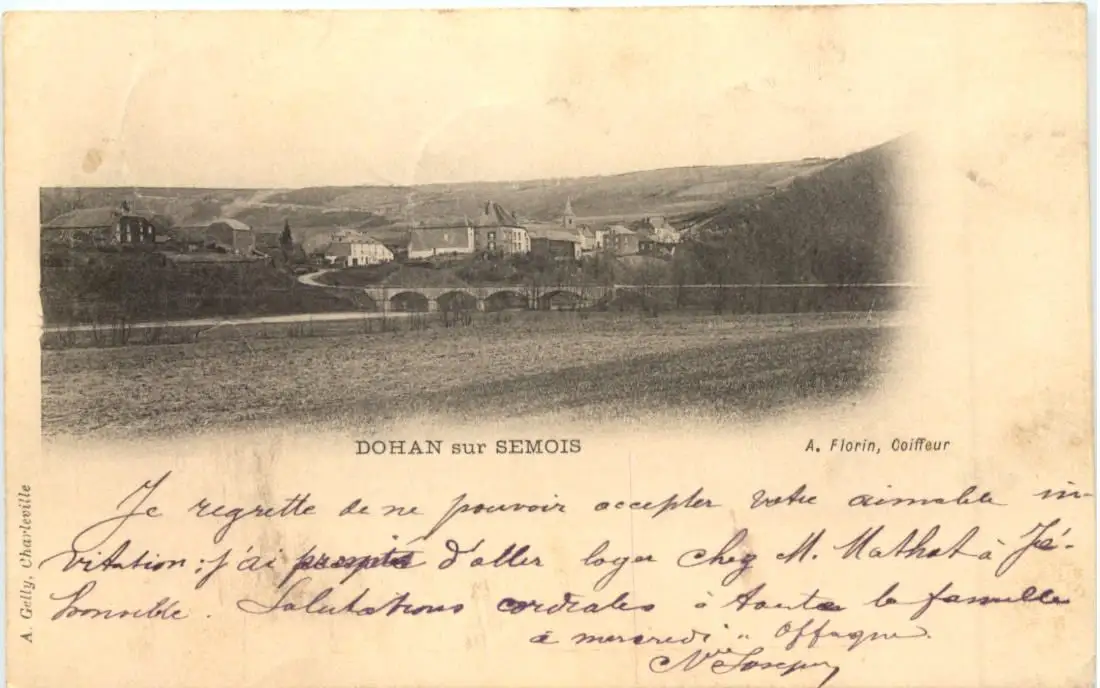 DOHAN sur SEMOIS
A. Florin, Coiffeur
A. Gelly, Charleville
Je regrette de ne pouvoir accepter votre aimable in-
vitation; j'ai promis d'aller loger chez M. Mathot à
Salutations cordiales à toute la famille
à mercredi.. Offagne.